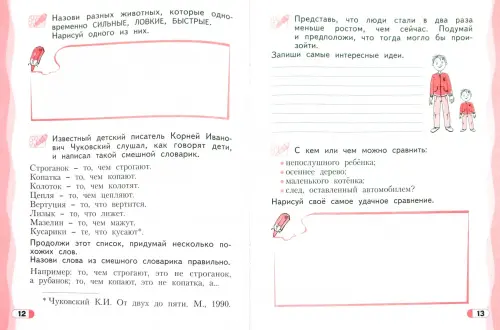 Назови разных животных, которые одно-
временно СИЛЬНЫЕ, ЛОВКИЕ, БЫСТРЫЕ.
Нарисуй одного из них.
Известный детский писатель Корней Ивано-
вич Чуковский слушал, как говорят дети,
и написал такой смешной словарик.
Строганок – то, чем строгают.
Копатка – то, чем копают.
Колоток – то, чем колотят.
Цепля – то, чем цепляют.
Вертуция – то, что вертится.
Лизык – то, что лижет.
Мазелин – то, чем мажут.
Кусарики – те, что кусают*.
Продолжи этот список, придумай несколько по-
хожих слов.
Назови слова из смешного словарика правильно.
Например: то, чем строгают, это не строганок,
а рубанок; то, чем копают, это не копатка, а...
* Чуковский К.И. От двух до пяти. М., 1990.
12
Представь, что люди стали в два раза
меньше ростом, чем сейчас. Подумай
и предположи, что тогда могло бы прои-
зойти.
Запиши самые интересные идеи.
С кем или чем можно сравнить:
• непослушного ребёнка;
• осеннее дерево;
• маленького котёнка;
• след, оставленный автомобилем?
Нарисуй своё самое удачное сравнение.
13